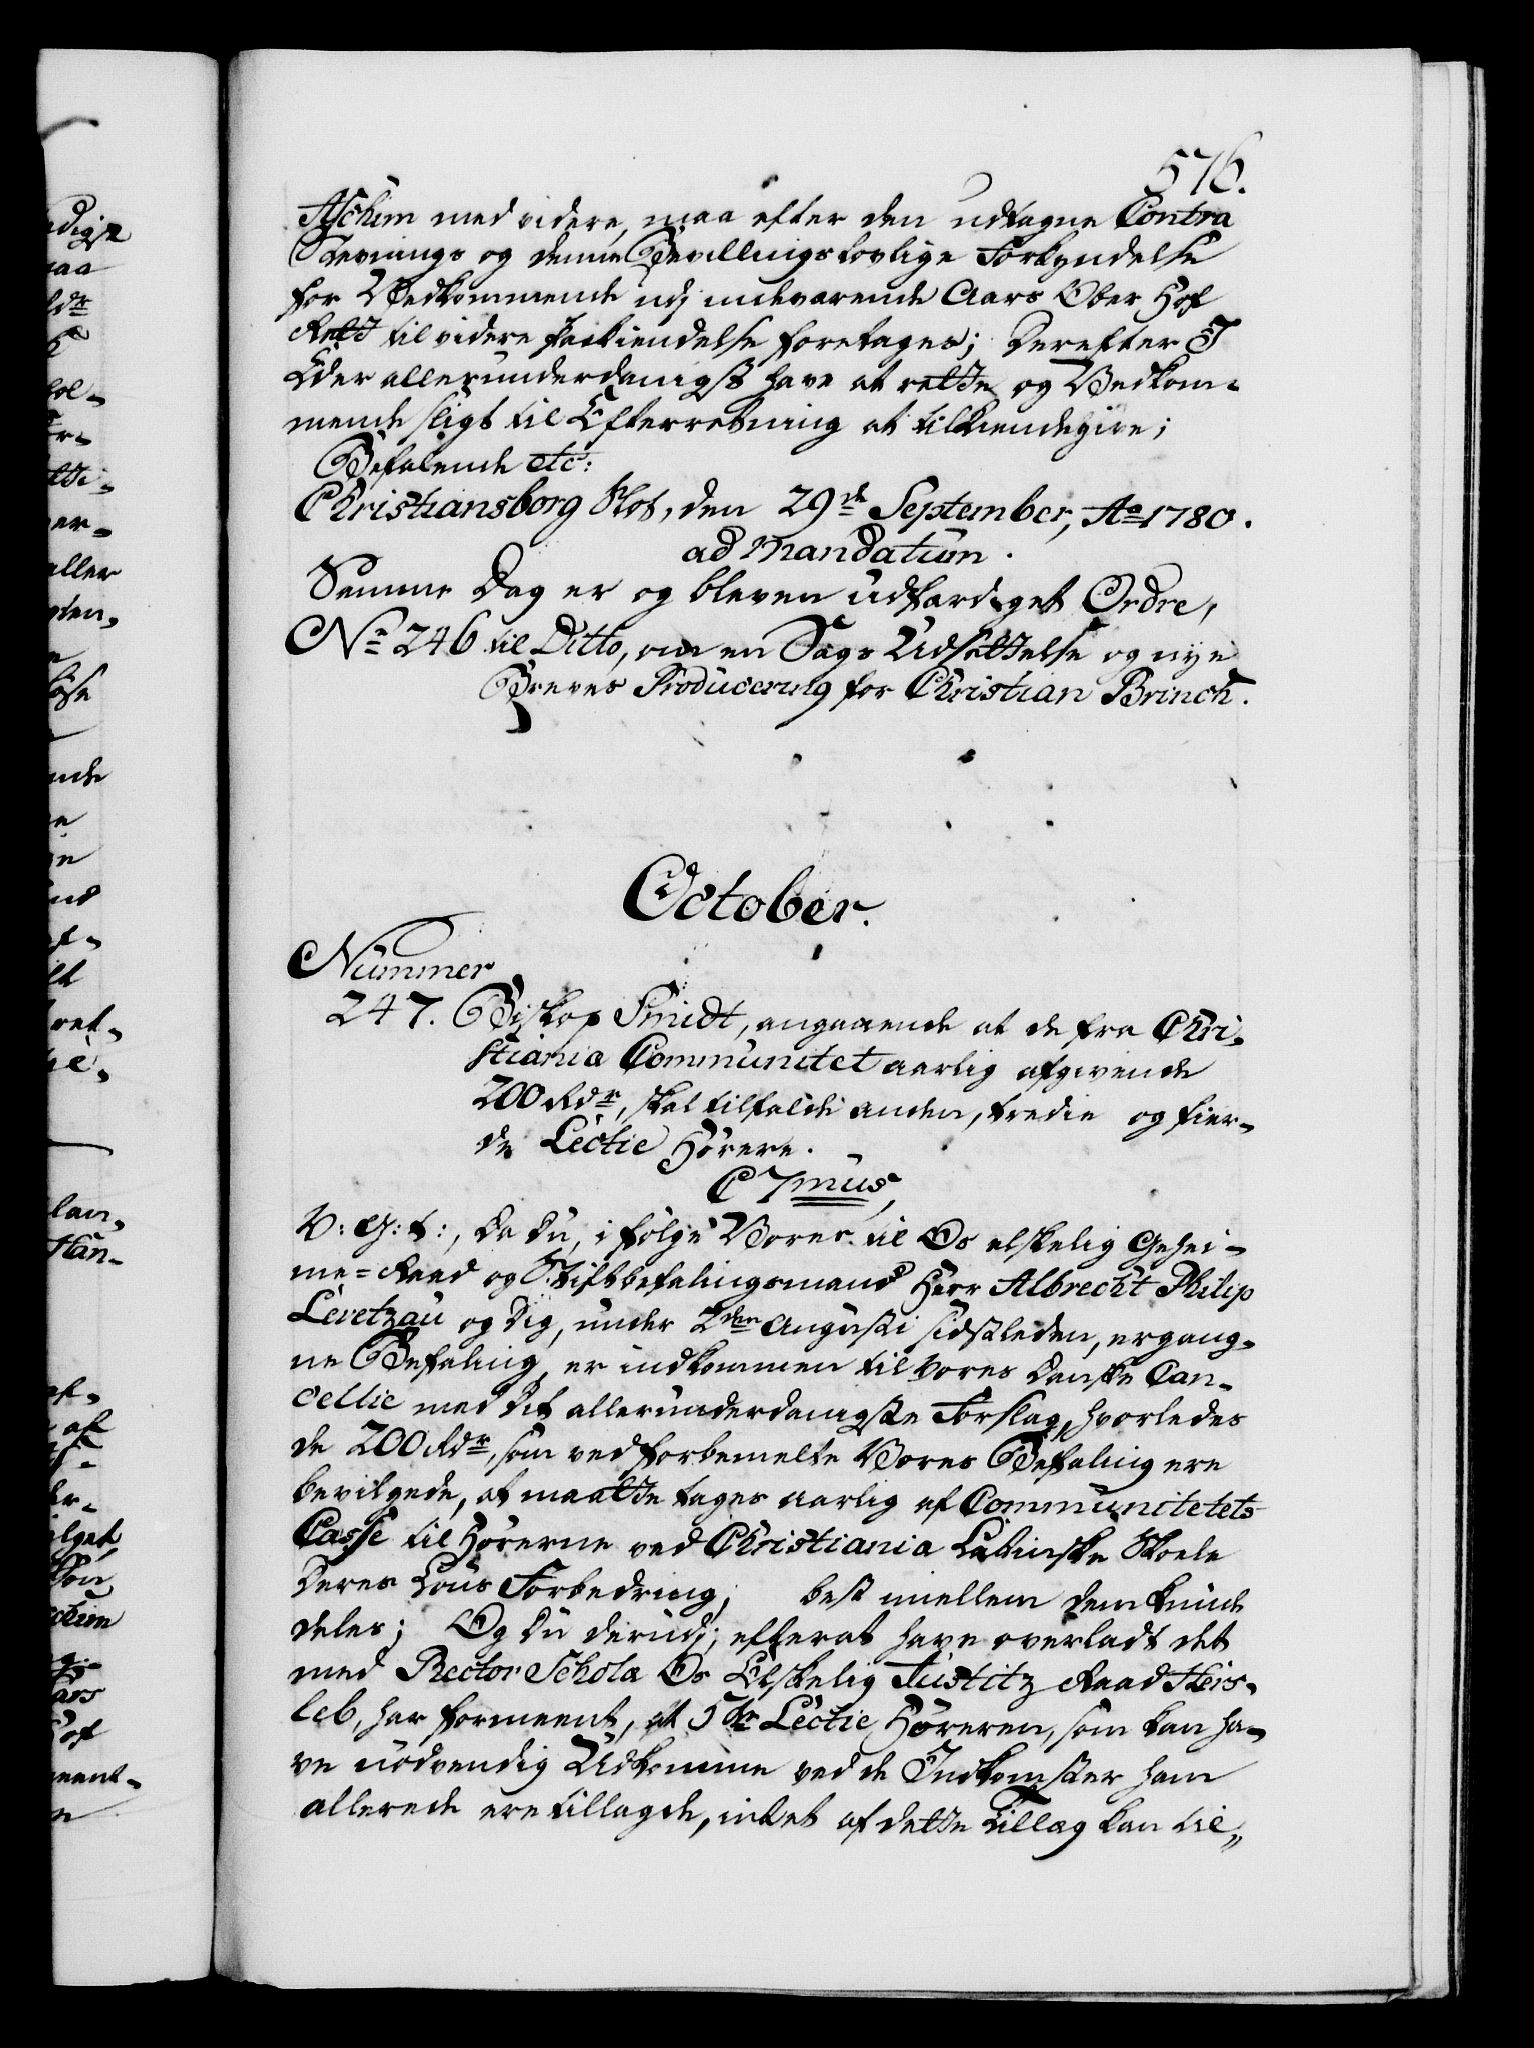 576.
Aschim med videre, maa efter den udtagne Contra
Stevnings og denne Bevillings lovlige Forkyndelse
for Vedkommende udj indeværende Aars Ober Hof
Rett til videre Paakiendelse foretages; Derefter I
Eder allerunderdanigst have at rette og Vedkom-
mende sligt til Efterretning at tilkiendegive;
Befalende etc:
Christiansborg Slot, den 29de September, Ao 1780.
ad Mandatum.
Samme Dag er og bleven udfærdiget Ordre,
No 246 til Ditto, om en Sags Udsættelse og nye
Breves Producering for Christian Brinch.
October.
Nummer
247. Biskop Smidt, angaaende at de fra Chri-
stiania Communitet aarlig afgivende
200 Rdr, skal tilfalde anden, tredie og fier-
de Lectie Hørere.
C 7mus,
V: G: t:, Da Du, i følge Vores til Os elskelig Gehei-
me-Raad og Stiftbefalingsmand Herr Albrecht Philip
Levetzau og Dig, under 2den Augusti sidstleden, ergang-
ne Befaling, er indkommen til Vores Danske Can-
cellie med Dit allerunderdanigste Forslag, hvorledes
de 200 Rdr, som ved forbemelte Vores Befaling ere
bevilgede, at maatte tages aarlig af Communitetets
Casse til Hørerne ved Christiania Latinske Skoele
Deres Løns Forbedring, best imellem dem kunde
deles; Og Du derudj, efter at have overladt det
med Rector Scholæ Os Elskelig Justitz Raad Heis-
leb, har formeent, at 5te Lectie Høreren, som kan ha-
ve nødvendig Udkomme ved de Indkomster ham
allerede ere tillagde, intet af dette Tillæg kan til-